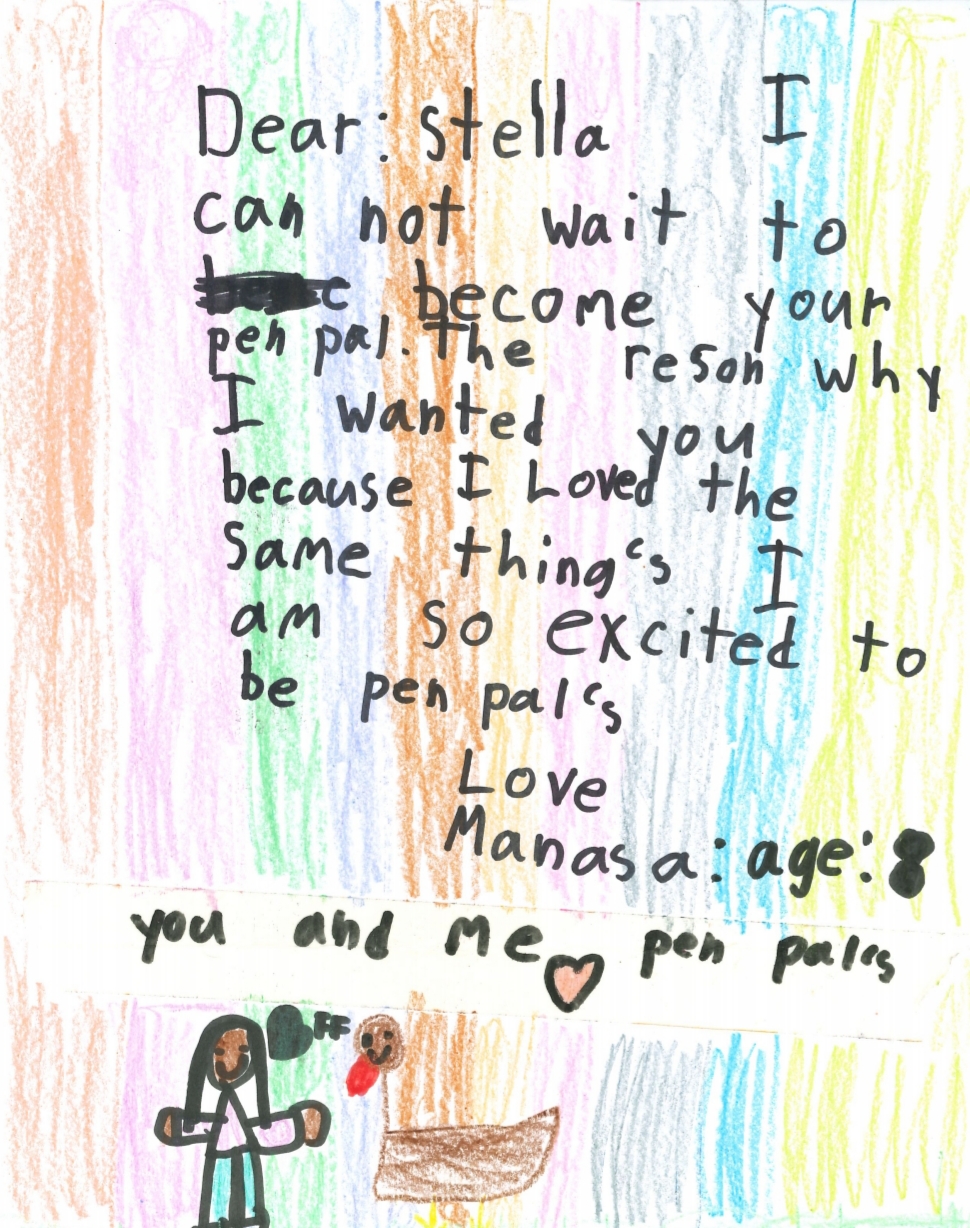 Dear: stella I
can not wait to
become your
pen pal. The reson why
I wanted you
because I Loved the
same thing's I
am so excited to
be pen pal's
Love
Manasa: age: 8
you and me pen pal's
FF